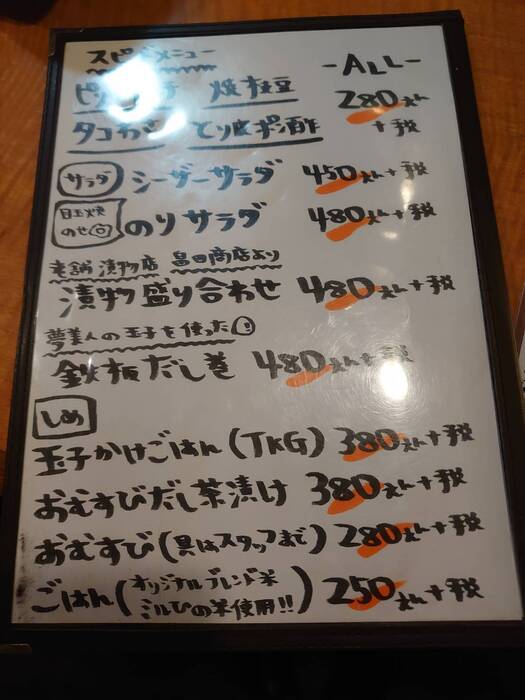 スピードメニュー -ALL-
焼枝豆 280えん
タコわさ とり皮ポン酢 +税
サラダ シーザーサラダ 450えん+税
目玉焼のせ のりサラダ 480えん+税
老舗漬物店 畠田商店より
漬物盛り合わせ 480えん+税
夢美人の玉子を使った
鉄板だし巻 480えん+税
しめ
玉子かけごはん(TKG) 380えん+税
おむすびだし茶漬け 380えん+税
おむすび(具はスタッフまで) 280えん+税
ごはん(オリジナルブレンド米 ミルひの米使用!!) 250えん+税